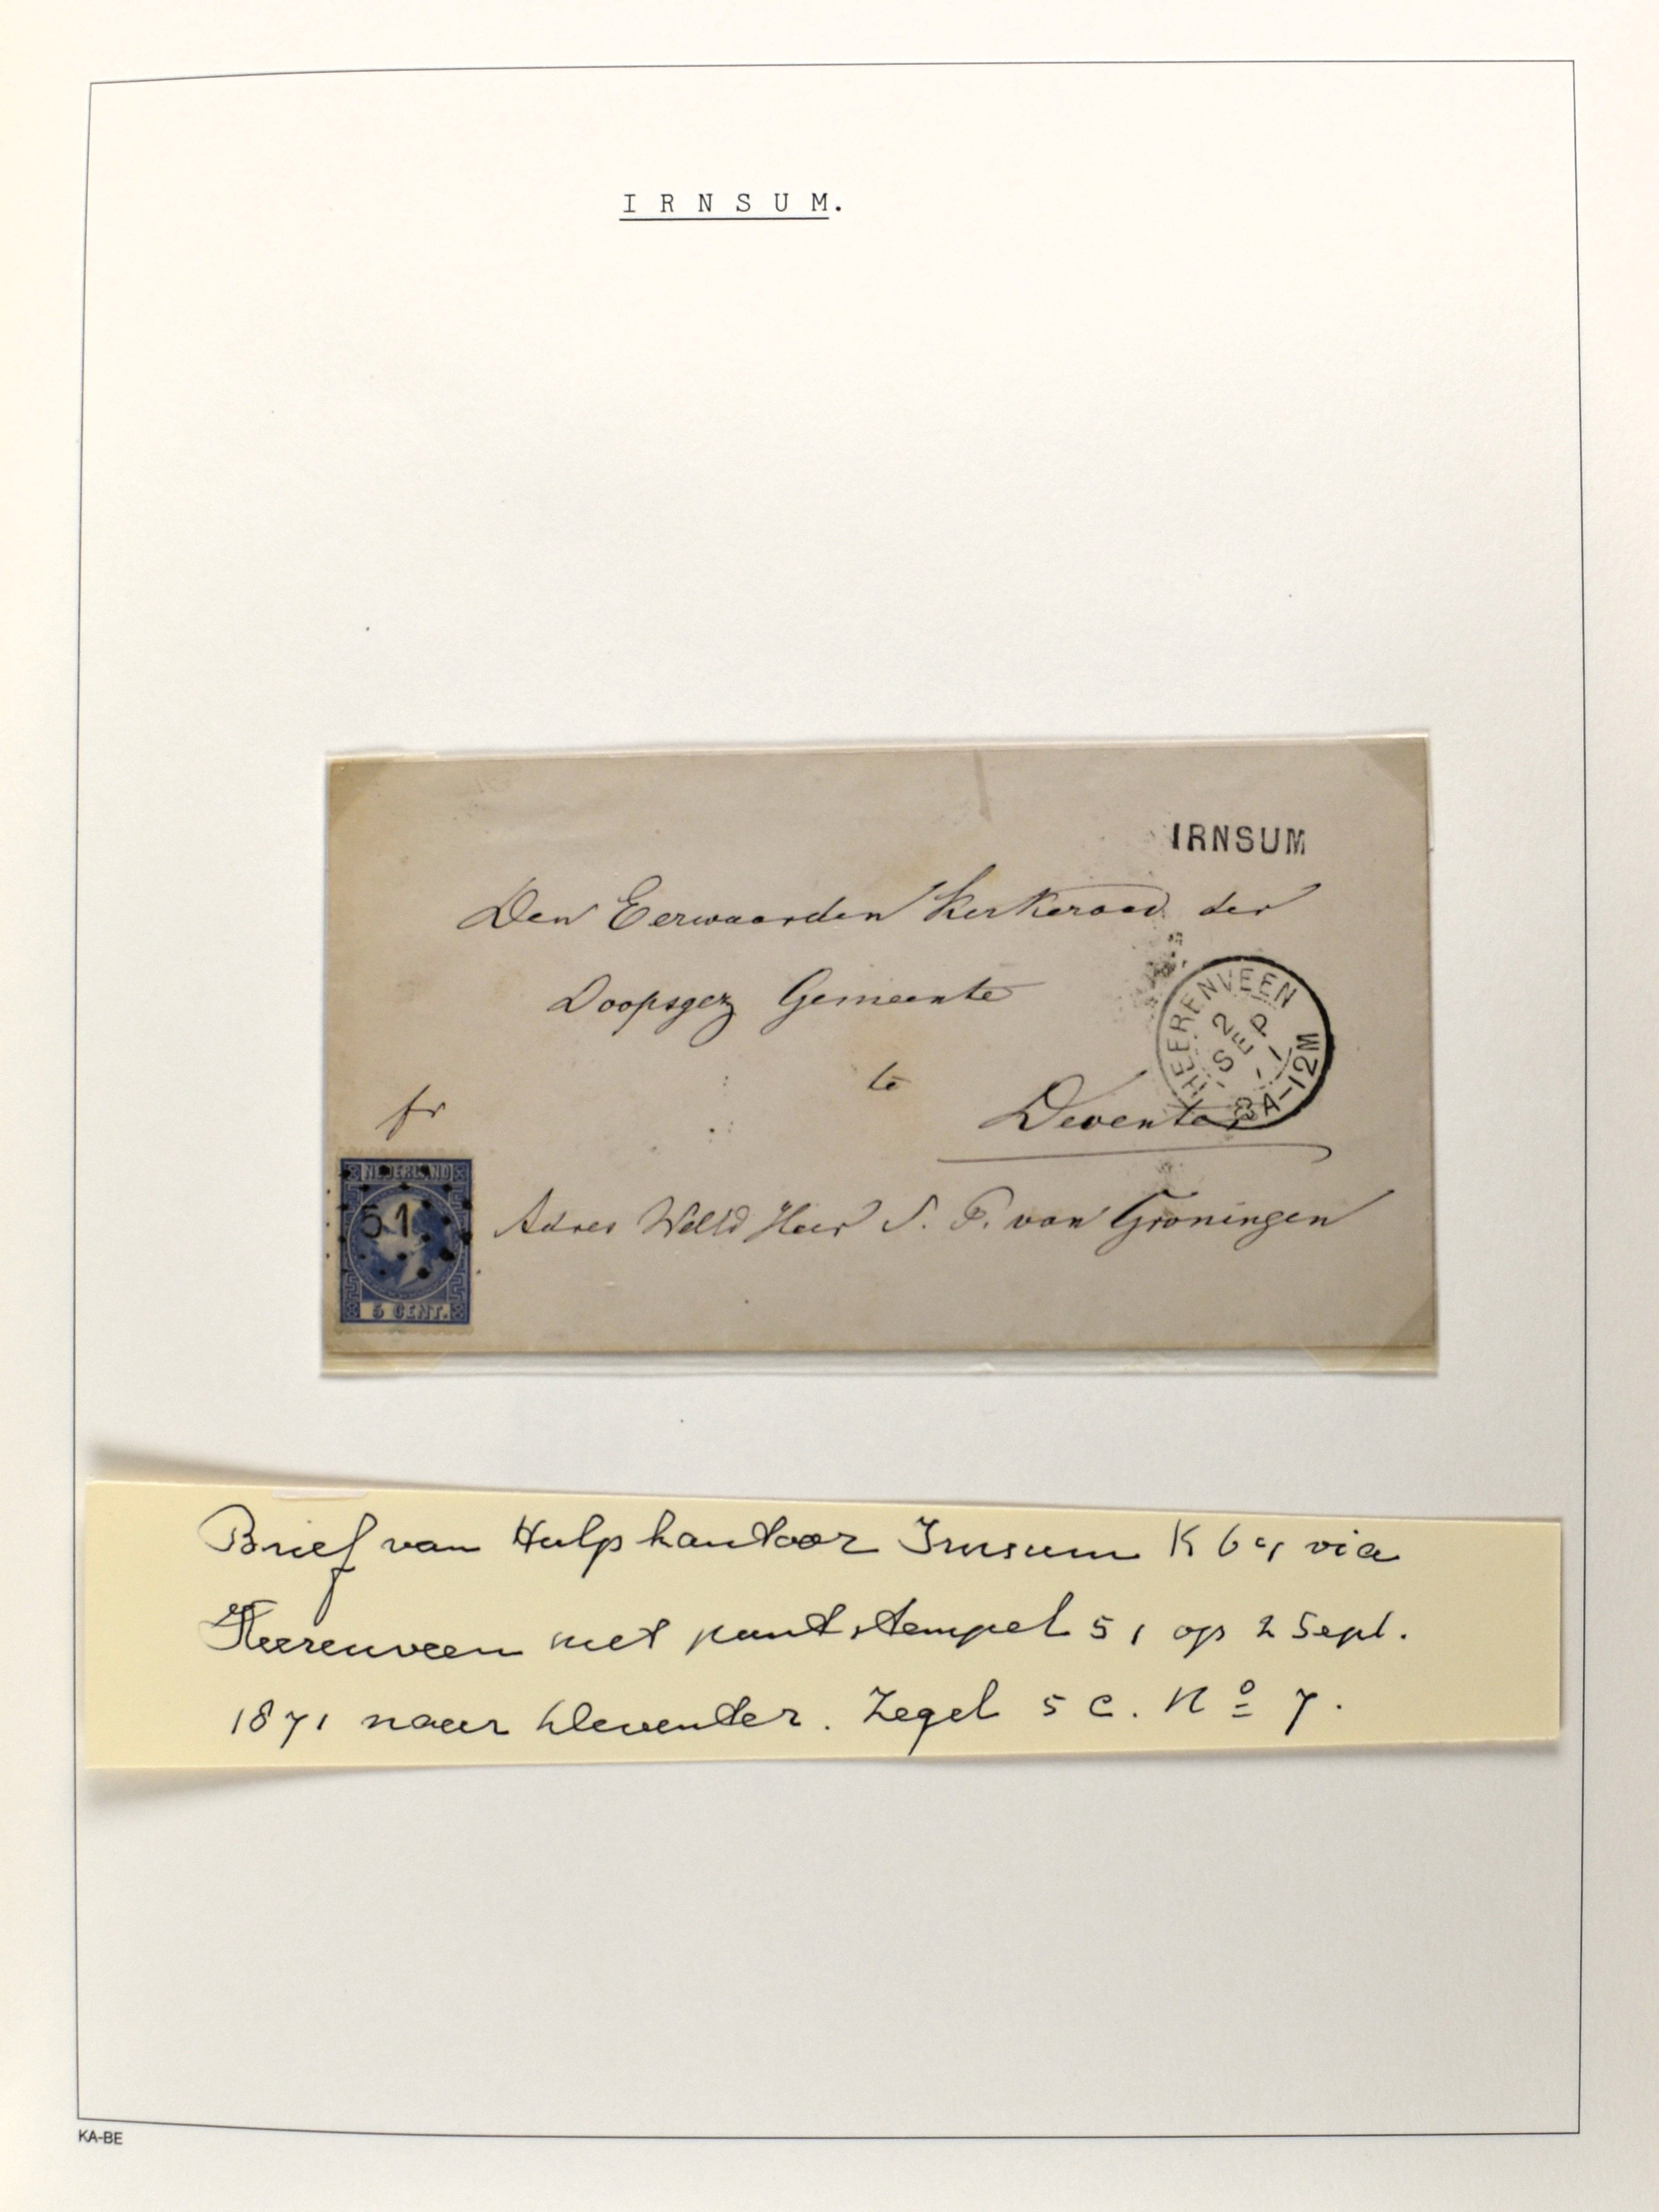 I R N S U M.
IRNSUM
Den Eerwaarden Kerkeraad der
Doopsgez Gemeente
te
Deventer
HEERENVEEN
2
SEP
8A-12M
fr
NEDERLAND
51
5 CENT.
Adres Heer S. P. van Groningen
Brief van Hulpkantoor Irnsum via
Heerenveen met puntstempel 51 op 2 Sept.
1871 naar Deventer. Zegel 5 c. No 7.
KA-BE